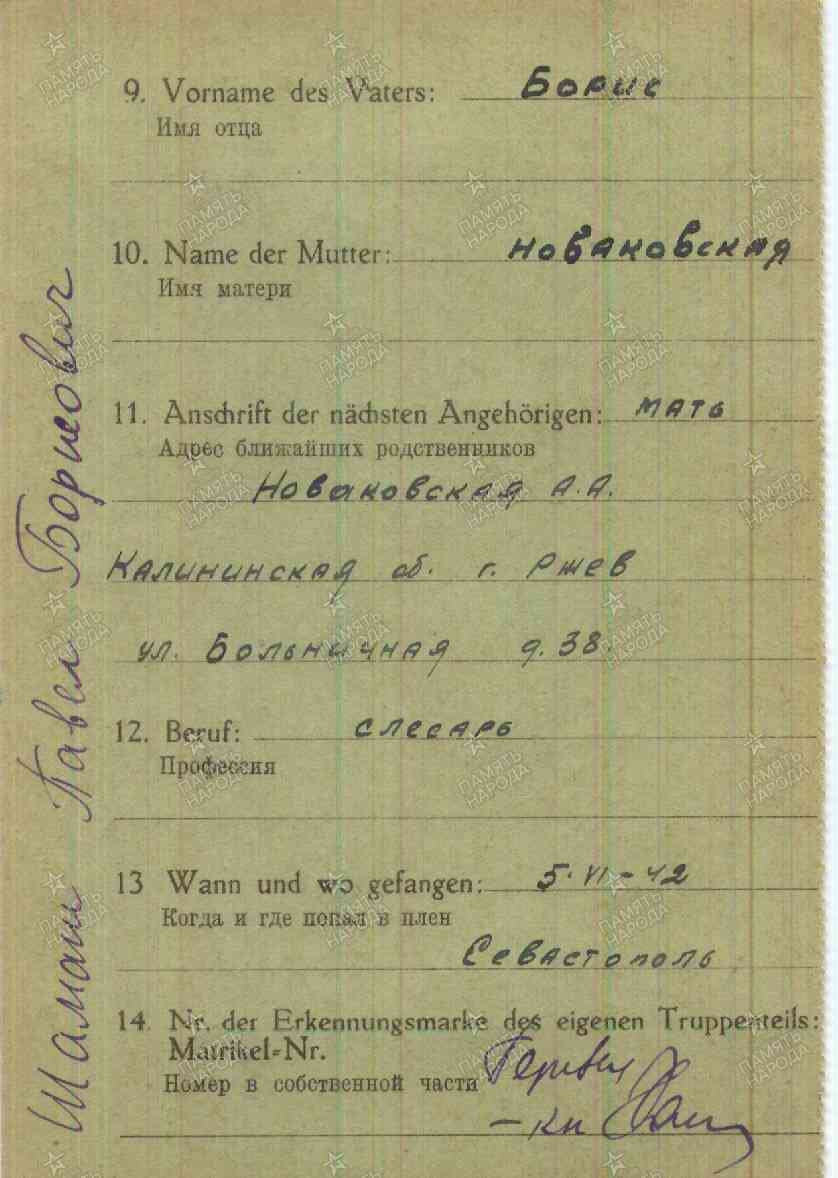 9. Vorname des Vaters: Борис
Имя отца
10. Name der Mutter: Новаковская
Имя матери
11. Anschrift der nächsten Angehörigen: мать
Адрес ближайших родственников
Новаковская А.А.
Калининская об. г. Ржев
ул. Больничная д. 38.
12. Beruf: слесарь
Профессия
13 Wann und wo gefangen: 5·VI-42
Когда и где попал в плен
Севастополь
14. Nr. der Erkennungsmarke des eigenen Truppenteils:
Matrikel-Nr.
Номер в собственной части
Павел Борисович
ПАМЯТЬ НАРОДА